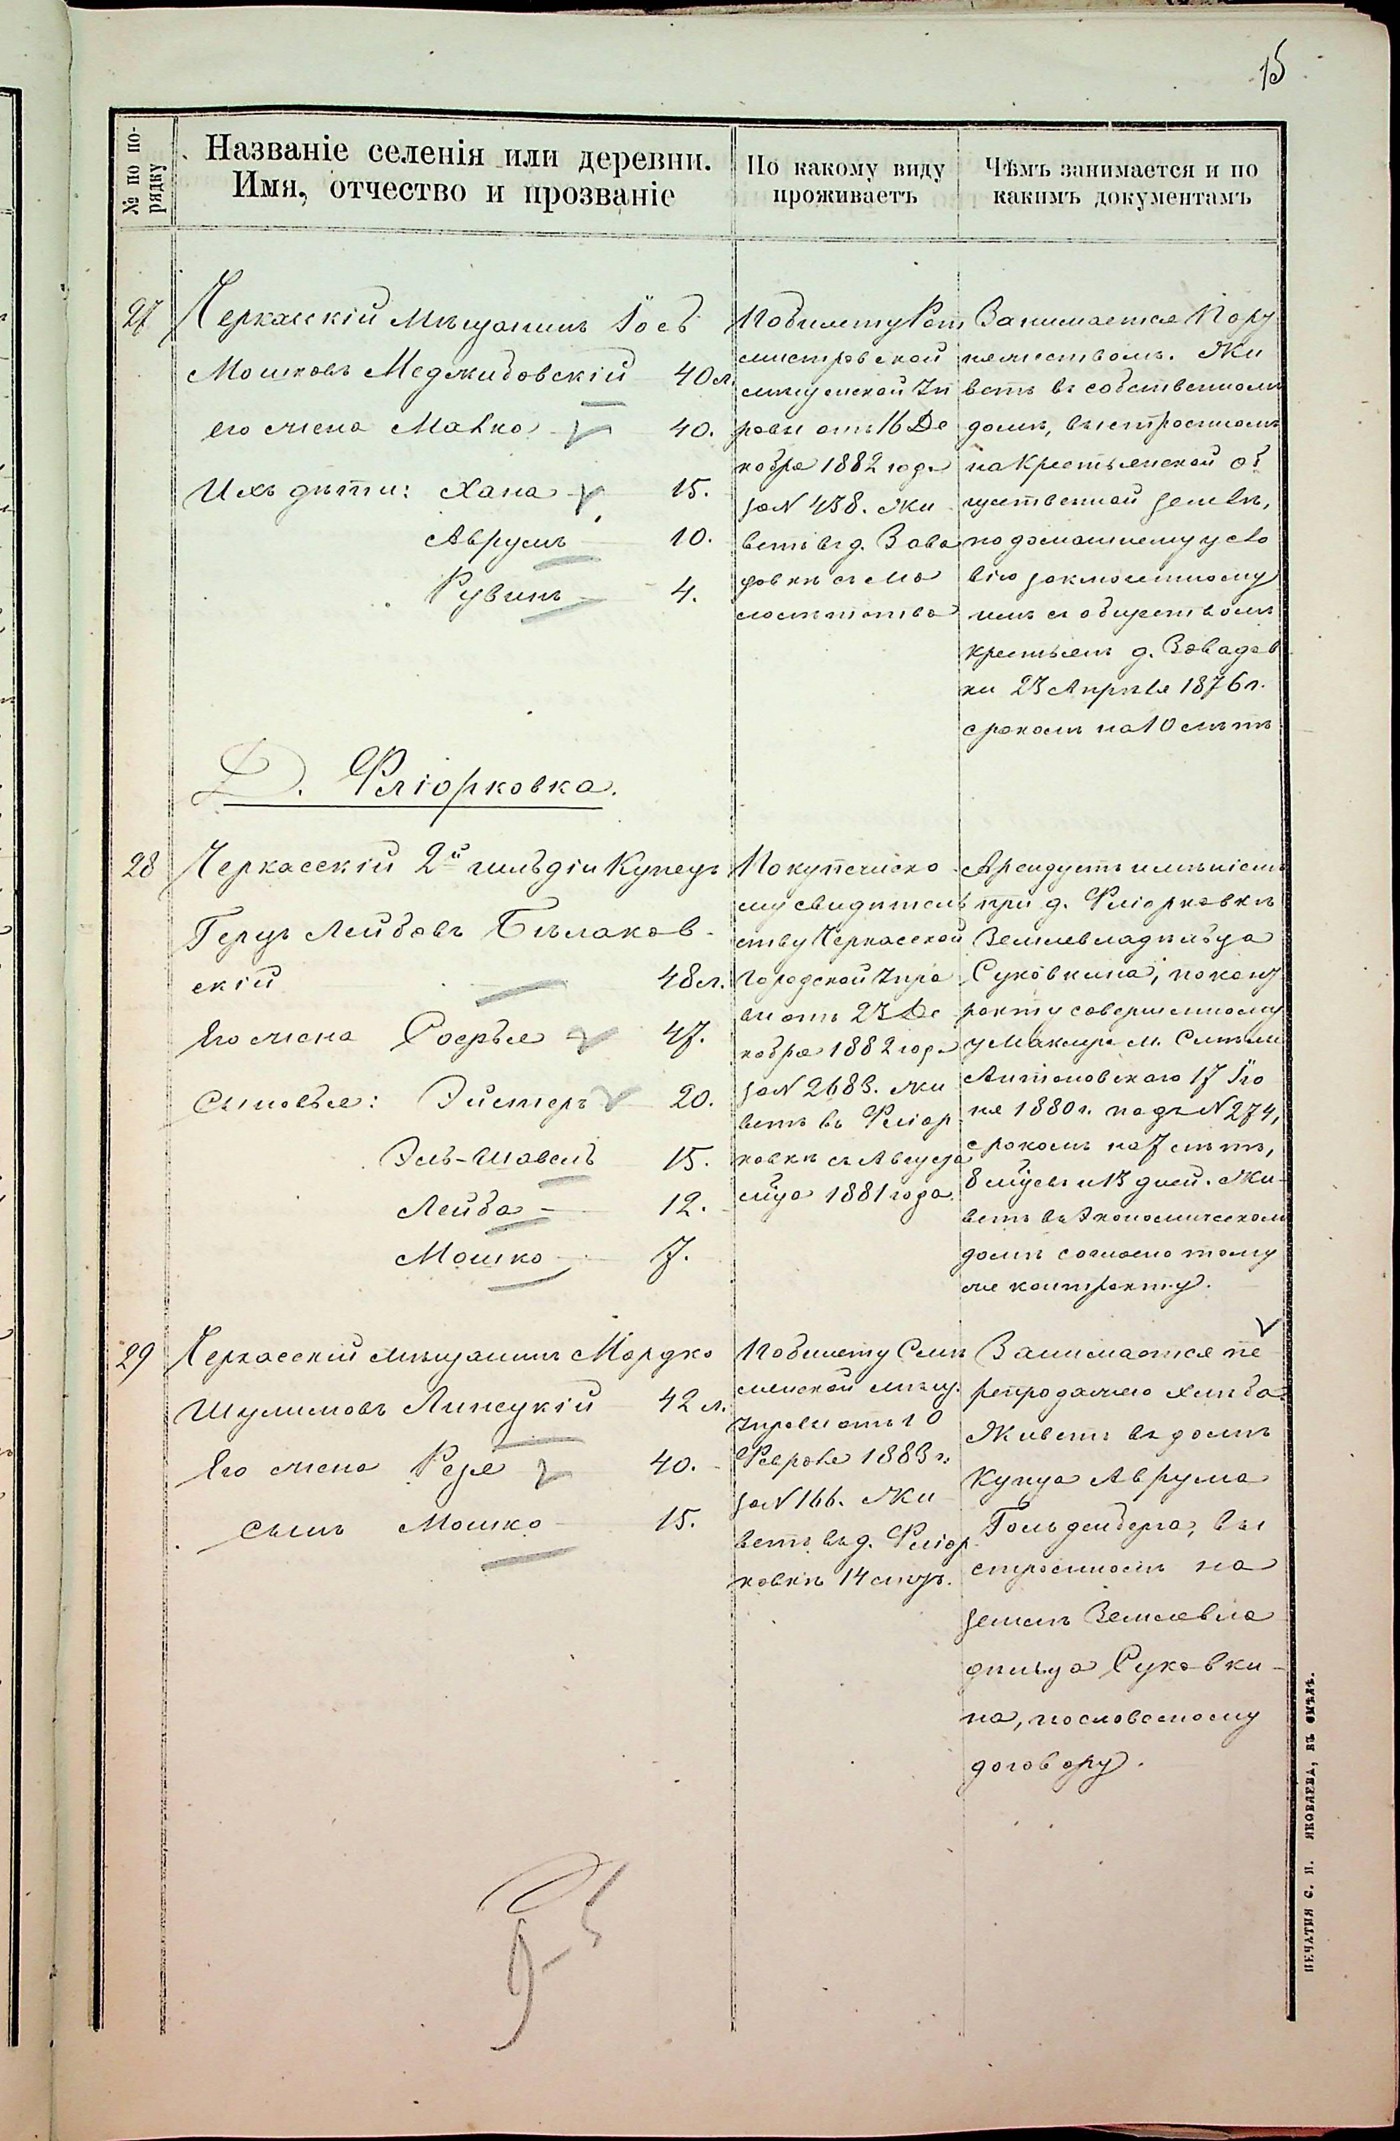 15
№ по по-
рядку
Названіе селенія или деревни.
Имя, отчество и прозваніе
По какому виду
проживаетъ
Чѣмъ занимается и по
какимъ документамъ
27
Черкасскій мѣщанинъ Іосъ
Мошковъ Меджибовскій 40 л.
его жена Малка 40.
Ихъ дѣти: Хана 15.
Аврумъ 10.
Рувинъ 4.
По билету Рот
мистровской
мѣщанской Уп
равы отъ 16 Де
кабря 1882 года
за N 438. Жи
ветъ въ д. Зава
довкѣ съ ма
лолѣтства
Занимается Пору
. Жи
ветъ въ собственномъ
домѣ, выстроенномъ
на Крестьянской об
щественной землѣ,
по домашнему усло
вію заключенному
имъ съ обществомъ
крестьянъ д. Завадов
ки 23 Апрѣля 1876 г.
срокомъ на 10 лѣтъ
Д. Фліорковка.
28
Черкасскій 2й гильдіи Купецъ
Герцъ Лейбовъ Бѣлаков-
скій 48 л.
Его жена Софья 47.
Сыновья: Эйстеръ 20.
Эль-Шавель 15.
Лейба 12.
Мошко 7.
По купеческо
му свидѣтель
ству Черкасской
Городской Упра
вы отъ 23 Де
кабря 1882 года
за N 2683. Жи
ветъ въ Фліор
ковкѣ съ Августа
мѣца 1881 года.
Арендуетъ имѣніемъ
при д. Фліорковкѣ
Землевладѣльца
Суковкина, по конт
ракту совершенному
у Маклера м. Смѣлы
Антоновскаго 17 Ію
ня 1880 г. подъ N 274,
срокомъ на 7 лѣтъ,
8 мѣцевъ и 13 дней. Жи-
ветъ въ Экономическомъ
домѣ согласно тому
же контракту.
29
Черкасскій мѣщанинъ Мордко
Шулимовъ Липецкій 42 л.
Его жена Рейзя 40.
сынъ Мошко 15.
По билету Смѣ
лянской мѣщ.
Управы отъ 10
Февраля 1883 г.
за N 166. Жи
ветъ въ д. Фліор
ковкѣ 14 лѣтъ.
Занимается пе
репродажею хлѣба.
Живетъ въ домѣ
купца Аврума
Гольденберга, вы
строенномъ на
землѣ Землевла
дѣльца Суковки-
на, по словесному
договору.
ПЕЧАТНЯ С. Н. ЯКОВЛЕВА, ВЪ СМѢЛѢ.